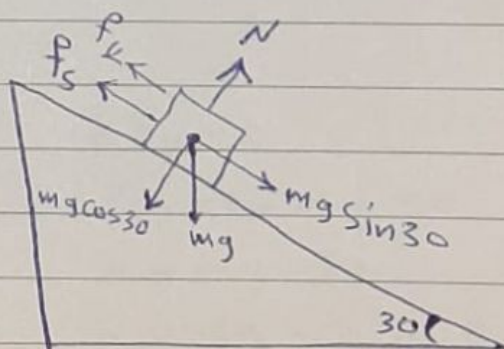 f
N
f_s
mg cos 30
mg
mg sin 30
30